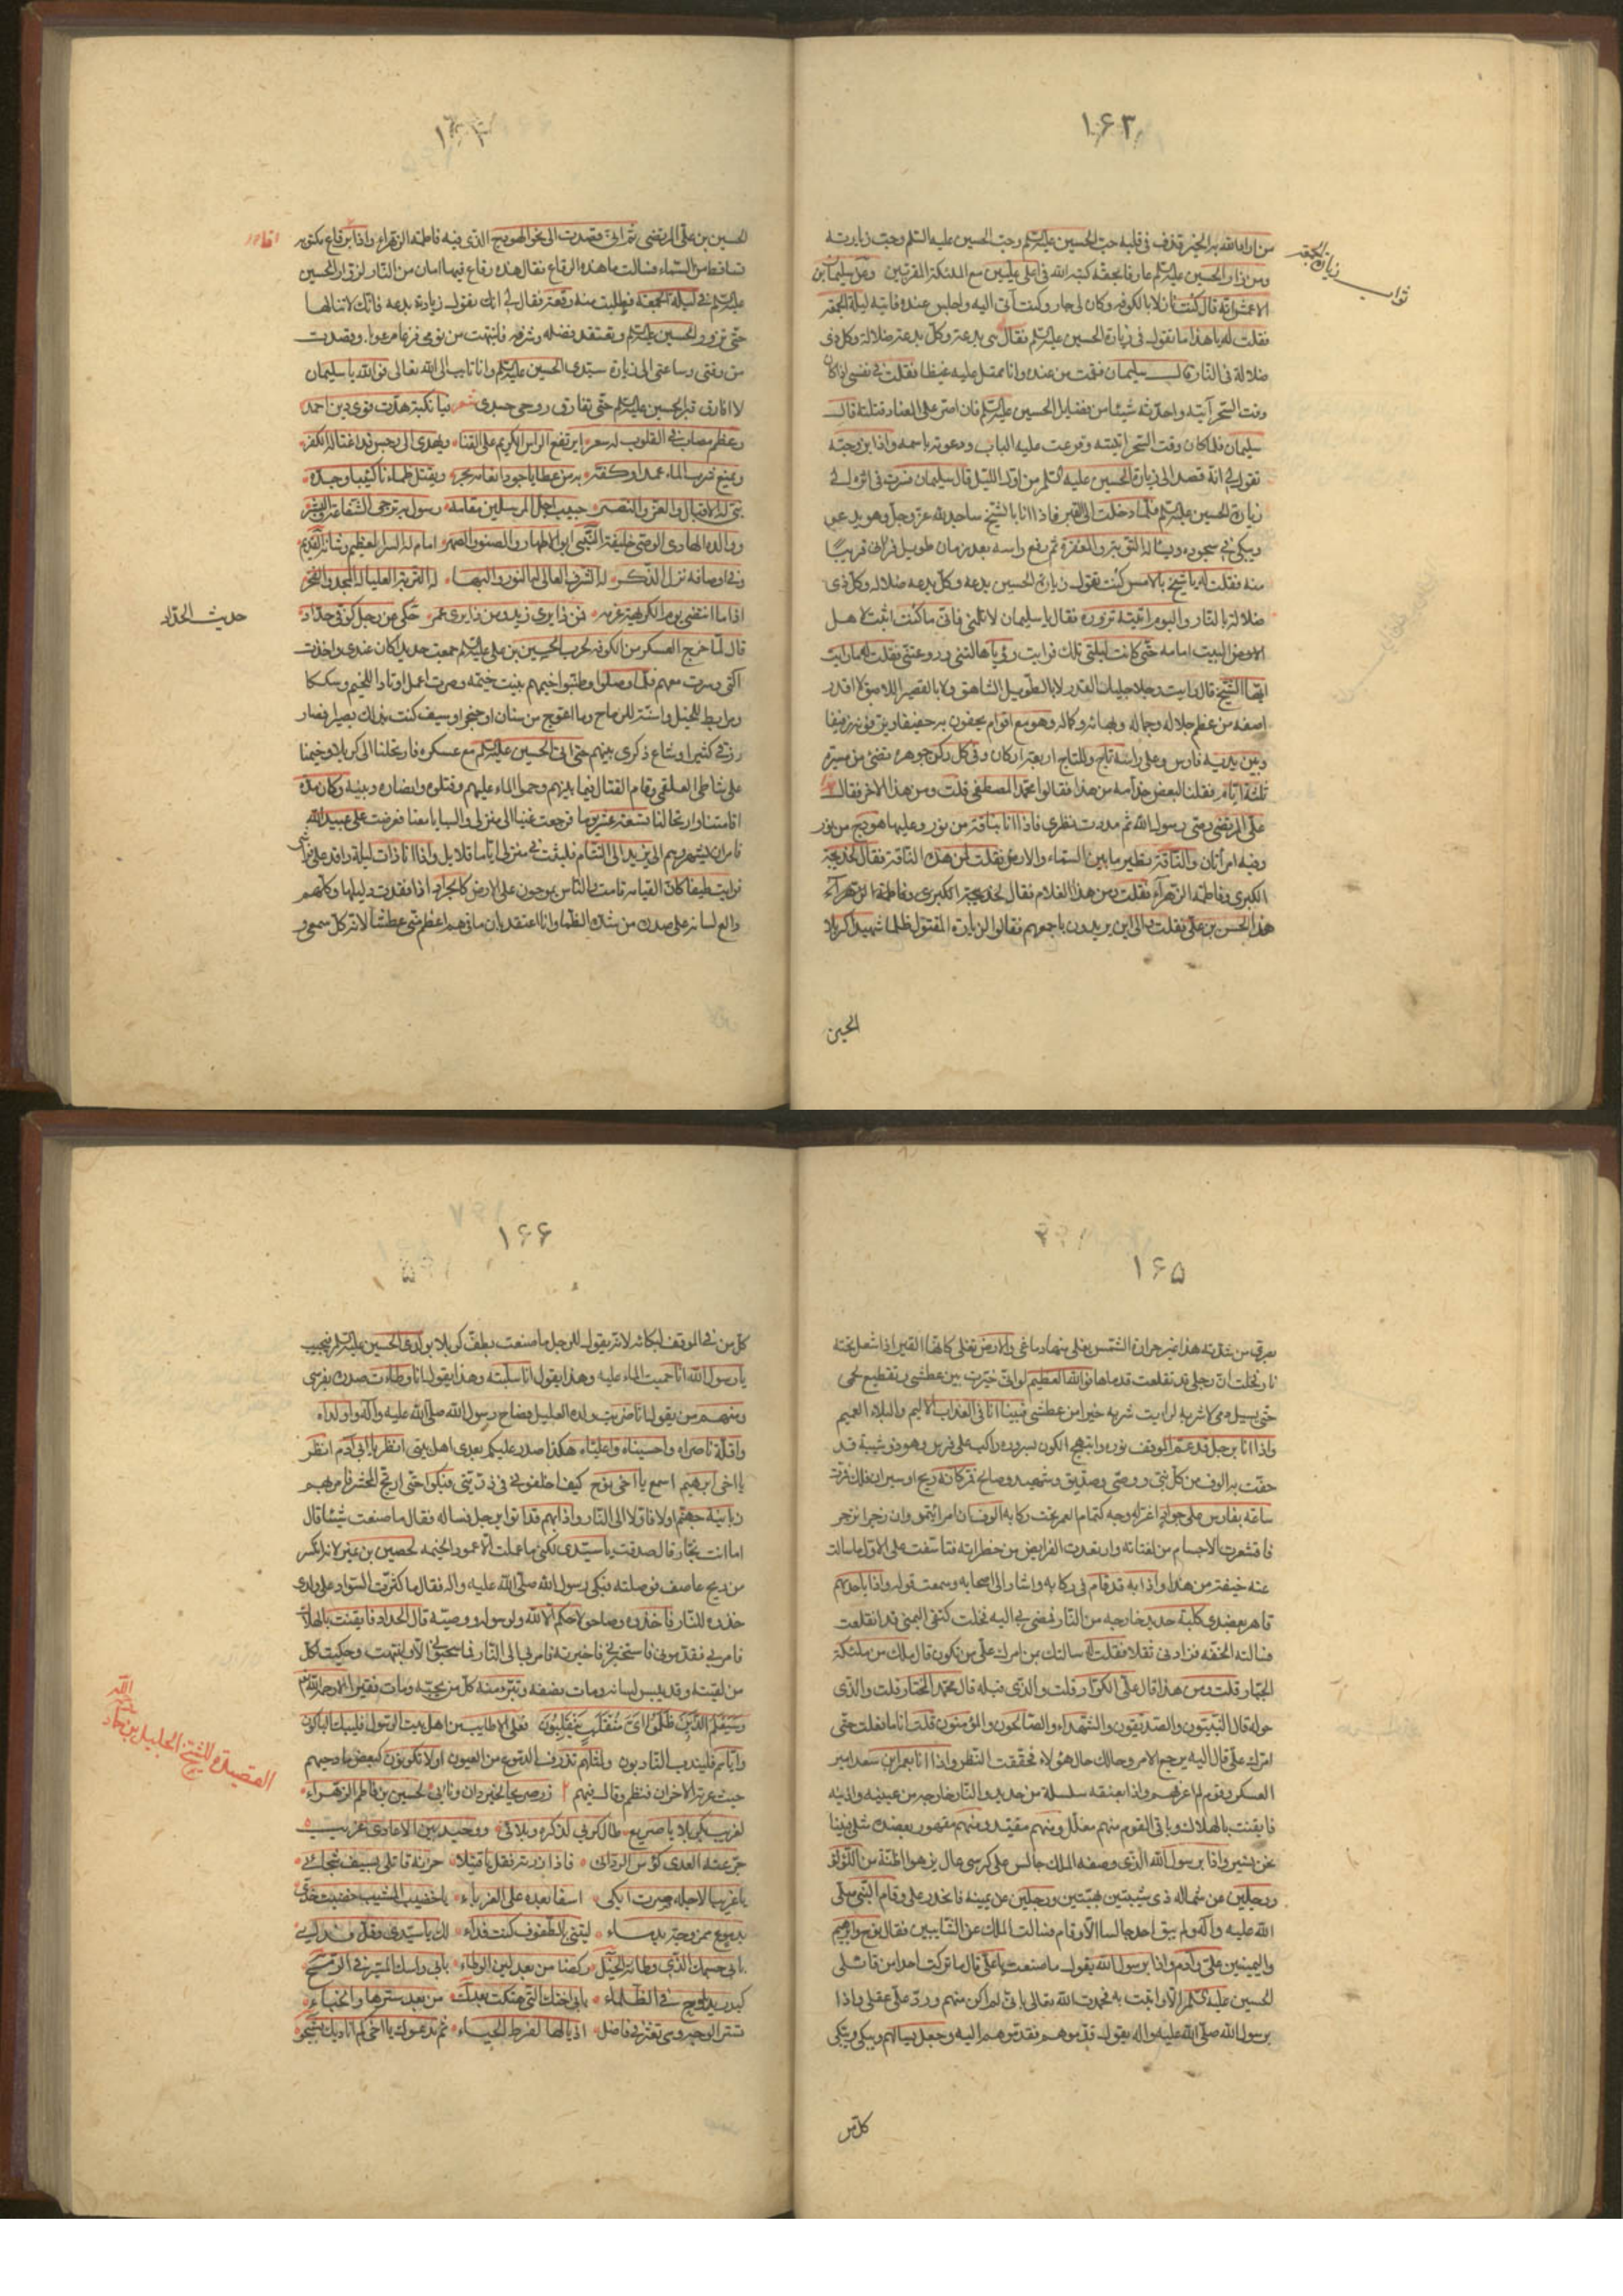 ١۶٣
من اراد الله به الخير قذف في قلبه حب الحسين عليه السلم وحب زيارته
ومن زار الحسين عليه السلم عارفا بحقه كتبه الله في اعلى عليين مع الملئكة المقربين وعن سليمان بن
الاعمش انه قال كنت نازلا بالكوفه وكان لي جار وكنت آتي اليه واجلس عنده فاتيته ليلة الجمعة
فقلت له يا هذا ما تقول في زيارة الحسين عليه السلم فقال هي بدعة وكل بدعة ضلالة وكل ذي
ضلالة في النار قال سليمان فقمت من عنده وانا ممتلي عليه غيظا فقلت في نفسي اذا كان
وقت السحر آتيته واحدثه شيئا من فضايل الحسين عليه السلم فان اصر على العناد قتلته قال
سليمان فلما كان وقت السحر اتيته وقرعت عليه الباب ودعوته باسمه واذا بزوجته
تقول لي انه قصد الى زيارة الحسين عليه السلم من اول الليل قال سليمان فسرت في اثره الى
زيارة الحسين عليه السلم فلما دخلت الى القبر فاذا انا بالشيخ ساجد لله عز وجل وهو يدعو
ويبكي في سجوده ويسأله التوبة والمغفرة ثم رفع راسه بعد زمان طويل فرآني قريبا
منه فقلت له يا شيخ بالامس كنت تقول زيارة الحسين بدعه وكل بدعه ضلاله وكل ذي
ضلالة في النار واليوم اتيته تزوره فقال يا سليمان لا تلمني فاني ما كنت اثبت لاهل
البيت امامه حتى كانت ليلتي تلك فرايت رؤيا هالتني وروعتني فقلت له ما رايت
ايها الشيخ قال رايت رجلا جليل القدر لا بالطويل الشاهق ولا بالقصير اللاصق لا اقدر
اصفه من عظم جلاله وجماله وبهائه وكماله وهو مع اقوام يحفون به حفيفا ويزفونه زفيفا
وبين يديه فارس وعلى راسه تاج وللتاج اربعة اركان وفي كل ركن جوهرة تضئ من مسيرة
ثلثة ايام فقلت لبعض خدامه من هذا فقالوا محمد المصطفى قلت ومن هذا الاخر فقالوا
علي المرتضى وصي رسول الله ثم مددت نظري فاذا انا بناقة من نور وعليها هودج من نور
وفيه امرأتان والناقة تطير ما بين السماء والارض فقلت لمن هذه الناقة فقال لخديجة
الكبرى وفاطمة الزهراء فقلت ومن هذا الغلام فقال
هذا الحسن بن علي فقلت والى اين يريدون باجمعهم فقالوا لزيارة المقتول ظلما شهيد كربلا
الحسين
ثواب زيارة الجمعه
الحسين بن علي المرتضى ثم اني قصدت الى نحو الهودج الذي فيه فاطمة الزهراء واذا برقاع مكتوبه
تساقط من السماء فسالت ما هذه الرقاع فقال هذه رقاع فيها امان من النار لزوار الحسين
عليه السلم في ليلة الجمعه فطلبت منه رقعة فقال لي انك تقول زيارته بدعه فانك لا تنالها
حتى تزور الحسين عليه السلم وتعتقد فضله وشرفه فانتبهت من نومي فزعا مرعوبا وقصدت
من وقتي وساعتي الى زيارة سيدي الحسين عليه السلم وانا تايب الى الله تعالى فوالله يا سليمان
لا افارق قبر الحسين عليه السلم حتى تفارق روحي جسدي شعر فيا نكبة هدت قوى دين احمد
وعظم مصاب في القلوب له سعر ايرتفع الراس الكريم على القنا ويهدى الى رجس قد اغتاله الكفر
ويمنع شرب الماء عمدا وكفه به من عطايا جود انعامه بحر ويقتل ظمآنا كئيبا وجده
نبي له الاقبال والعز والنصر حبيب اجل المرسلين مقامه رسول به ترجى الشفاعة والبشر
ووالده الهادي الوصي خليفة النبي ابو الاطهار والصنو والصهر امام له السر العظيم وشانه القديم
وفي اوصافه نزل الذكر له الشرف العالي له النور والبهاء له الرتبة العليا له المجد والفخر
حديث الحداد
حكي عن رجل كوفي حداد
قال لما خرج العسكر من الكوفه لحرب الحسين بن علي عليه السلم جمعت حديدا كان عندي واخذت
آلتي وسرت معهم فلما وصلوا وطنبوا خيمهم بنيت خيمة وصرت اعمل اوتادا للخيم وسككا
ومرابط للخيل واسنة للرماح وما اعوج من سنان او خنجر او سيف كنت بذلك بصيرا فصار
رزقي كثيرا وشاع ذكري بينهم حتى اتى الحسين عليه السلم مع عسكره فارتحلنا الى كربلا وخيمنا
على شاطئ العلقمي وقام القتال فيما بينهم وحموا الماء عليهم وقتلوه وانصاره وبنيه وكان مدة
اقامتنا وارتحالنا تسعة عشر يوما فرجعت غنيا الى منزلي والسبايا معنا فعرضت على عبيد الله
فامر ان يشهروهم الى يزيد الى الشام فلبثت في منزلي اياما قلايل واذا انا ذات ليلة راقد على فراشي
فرايت طيفا كان القيامة قامت والناس يموجون على الارض كالجراد اذا فقدت دليلها وكلهم
دالع لسانه على صدره من شدة الظما وانا اعتقد بان ما فيهم اعظم مني عطشا لانه كل سمعي و
١۶۵
بصري من شدته هذا غير حرارة الشمس يغلي منها دماغي والارض تغلي كانها القير اذا اشعل تحته
نار فخلت ان رجلي قد تقلعت قدماها فوالله العظيم لو اني خيرت بين عطشي وتقطيع لحمي
حتى يسيل دمي لاشربه لرايت شربه خيرا من عطشي فبينا انا في العذاب الاليم والبلاء العميم
واذا انا برجل قد عم الموقف نوره وابتهج الكون بسروره راكب على فرس وهو ذو شيبة قد
حفت به الوف من كل نبي ووصي وصديق وشهيد وصالح فمر كانه ريح او سيران فلك فمرت
ساعة بفارس على جواد اغر له وجه كتمام القمر تحت ركابه الوف ان امر ائتمروا وان زجر انزجروا
فاقشعرت الاجسام من لفتاته وارتعدت الفرايص من خطراته فتاسفت على الاول ما سالت
عنه خيفة من هذا واذا به قد قام في ركابه واشار الى اصحابه وسمعت قوله خذوه واذا باحدهم
قاهر بعضدي كلبة حديد خارجه من النار فمضى بي اليه فخلت كتفي اليمنى قد انقلعت
فسالته الخفه فزادني ثقلا فقلت له سالتك بمن امرك علي من تكون قال ملك من ملئكة
الجبار قلت ومن هذا قال علي الكرار قلت والذي قبله قال محمد المختار قلت والذي
حوله قال النبيون والصديقون والشهداء والصالحون والمؤمنون قلت انا ما فعلت حتى
امرك علي قال اليه يرجع الامر وحالك حال هؤلاء فحققت النظر واذا انا بعمر بن سعد امير
العسكر وقوم لم اعرفهم واذا بعنقه سلسلة من حديد والنار خارجه من عينيه واذنيه
فايقنت بالهلاك وباقي القوم منهم مغلل ومنهم مقيد ومنهم مقهور بعضده مثلي فبينا
نحن نسير واذا برسول الله الذي وصفه الملك جالس على كرسي عال يزهو اظنه من اللؤلؤ
ورجلين عن شماله ذي شيبتين بهيتين ورجلين عن يمينه
الله عليه وآله ولم يبق احد جالسا الا وقام فسالت الملك عن الشايبين فقال نوح وابراهيم
واليمينين علي وآدم واذا برسول الله يقول ما صنعت يا علي قال ما تركت احدا من قاتلي
الحسين عليه السلم الا واتيت به فحمدت الله تعالى باني لم اكن منهم ورد علي عقلي واذا
برسول الله صلى الله عليه واله يقول قدموهم فقدموهم اليه وجعل يسالهم ويبكي ويبكي
كل من
١۶۶
كل من في الموقف لبكائه لانه يقول للرجل ما صنعت بطف كربلا بولدي الحسين عليه السلم فيجيب
يا رسول الله انا حميت الماء عليه وهذا يقول انا سلبته وهذا يقول انا وطات صدره بفرسي
ومنهم من يقول انا ضربت ولده العليل فصاح رسول الله صلى الله عليه وآله واولداه
واقلة ناصراه واحسيناه واعلياه هكذا صدر عليكم بعدي اهل بيتي انظر يا ابي آدم انظر
يا اخي ابرهيم اسمع يا اخي نوح كيف اخلفوني في ذريتي فبكوا حتى ارتج المحشر فامر بهم
زبانية جهنم اولا فاولا الى النار واذا بهم قد اتوا برجل فساله فقال ما صنعت شيئا قال
اما انت نجار قال صدقت يا سيدي لكني ما عملت الا عمود الخيمه لحصين بن نمير لانه انكسر
من ريح عاصف فوصلته فبكى رسول الله صلى الله عليه واله فقال ما كثرت السواد على ولدي
خذوه للنار فاخذوه وصاحوا لا حكم الا لله ولرسوله ووصيه قال الحداد فايقنت بالهلاك
فامر بي فقدموني فاستخبرني فاخبرته فامر بي الى النار فما سحبوني الا وانتبهت وحكيت لكل
من لقيته وقد يبس لسانه ومات نصفه وتبرء منه كل من يحبه ومات فقيرا لا رحمه الله
وسيعلم الذين ظلموا اي منقلب ينقلبون فعلى الاطايب من اهل بيت الرسول فليبك الباكون
واياهم فليندب النادبون ولمثلهم تذرف الدموع من العيون اولا تكونون كبعض مادحيهم
حيث عرته الاحزان فنظم وقال فيهم
القصيدة للشيخ الجليل بن حماد
لغريب بكربلا يا صريع طال كربي لذكره وبلائي ووحيد بين الاعادي غريب
جرعته العدى كؤس الردى
يا غريبا لاجله صرت ابكي اسفا بعده على الغرباء يا خضيب المشيب خضبت خدي
بدموع ممزوجة بدماء ليتني بالطفوف كنت فداء لك يا سيدي وقل فدائي
بابي جسمك الذي وطاته الخيل ركضا من بعد لين الوطاء بابي راسك المنير في الرمح
كبدر يلوح في الظلماء بابي اختك التي هتكت بعدك من بعد سترها والخباء
ثم تدعوك يا اخي كم اناديك